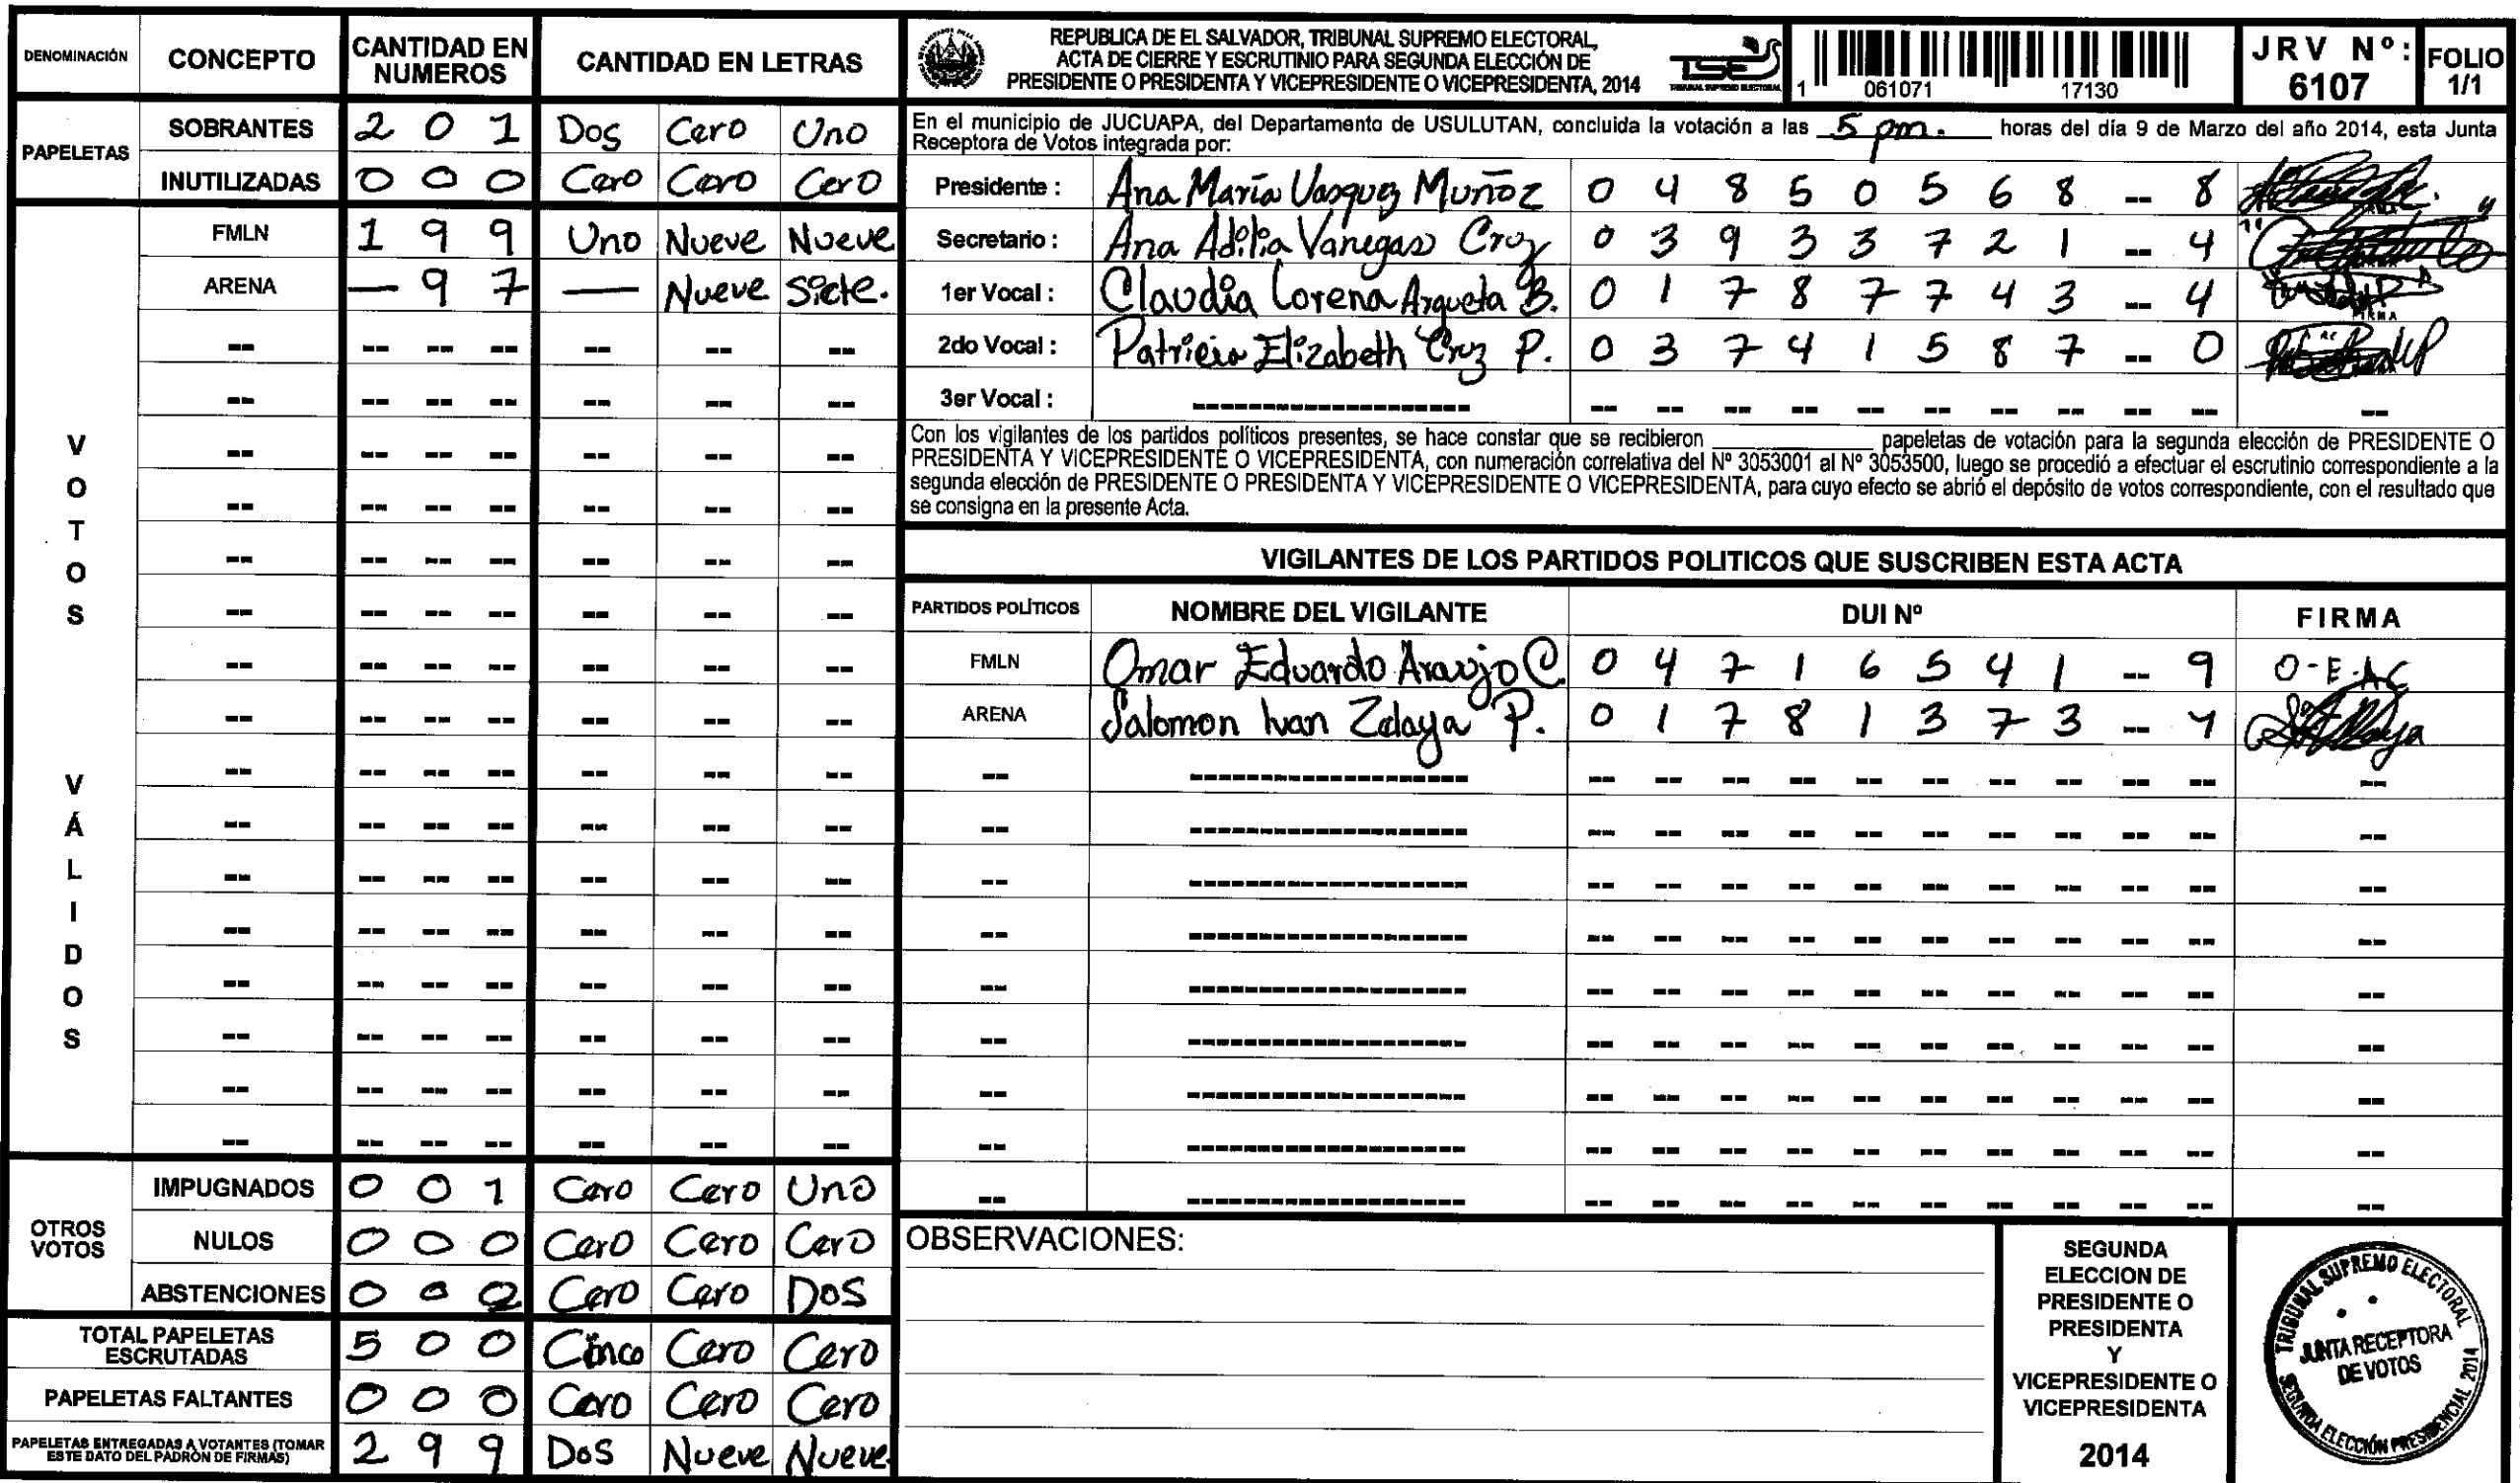 DENOMINACIÓN CONCEPTO CANTIDAD EN NUMEROS CANTIDAD EN LETRAS
PAPELETAS
SOBRANTES 2 0 1 Dos Cero Uno
INUTILIZADAS 0 0 0 Cero Cero Cero
VOTOS VÁLIDOS
FMLN 1 9 9 Uno Nueve Nueve
ARENA — 9 7 — Nueve Siete.
OTROS VOTOS
IMPUGNADOS 0 0 1 Cero Cero Uno
NULOS 0 0 0 Cero Cero Cero
ABSTENCIONES 0 0 2 Cero Cero Dos
TOTAL PAPELETAS ESCRUTADAS 5 0 0 Cinco Cero Cero
PAPELETAS FALTANTES 0 0 0 Cero Cero Cero
PAPELETAS ENTREGADAS A VOTANTES (TOMAR ESTE DATO DEL PADRÓN DE FIRMAS) 2 9 9 Dos Nueve Nueve
REPUBLICA DE EL SALVADOR, TRIBUNAL SUPREMO ELECTORAL,
ACTA DE CIERRE Y ESCRUTINIO PARA SEGUNDA ELECCIÓN DE
PRESIDENTE O PRESIDENTA Y VICEPRESIDENTE O VICEPRESIDENTA, 2014
TSE
TRIBUNAL SUPREMO ELECTORAL
1 061071 17130
JRV Nº: 6107
FOLIO 1/1
En el municipio de JUCUAPA, del Departamento de USULUTAN, concluida la votación a las 5 pm. horas del día 9 de Marzo del año 2014, esta Junta
Receptora de Votos integrada por:
Presidente : Ana María Vasquez Muñoz 0 4 8 5 0 5 6 8 -- 8
Secretario : Ana Adilia Vanegas Cruz 0 3 9 3 3 7 2 1 -- 4
1er Vocal : Claudia Lorena Argueta B. 0 1 7 8 7 7 4 3 -- 4
2do Vocal : Patricia Elizabeth Cruz P. 0 3 7 4 1 5 8 7 -- 0
3er Vocal :
Con los vigilantes de los partidos políticos presentes, se hace constar que se recibieron ____ papeletas de votación para la segunda elección de PRESIDENTE O
PRESIDENTA Y VICEPRESIDENTE O VICEPRESIDENTA, con numeración correlativa del Nº 3053001 al Nº 3053500, luego se procedió a efectuar el escrutinio correspondiente a la
segunda elección de PRESIDENTE O PRESIDENTA Y VICEPRESIDENTE O VICEPRESIDENTA, para cuyo efecto se abrió el depósito de votos correspondiente, con el resultado que
se consigna en la presente Acta.
VIGILANTES DE LOS PARTIDOS POLITICOS QUE SUSCRIBEN ESTA ACTA
PARTIDOS POLÍTICOS NOMBRE DEL VIGILANTE DUI Nº FIRMA
FMLN Omar Eduardo Araujo C 0 4 7 1 6 5 4 1 -- 9 O-E-AC
ARENA Salomon Ivan Zelaya P. 0 1 7 8 1 3 7 3 -- 4
OBSERVACIONES:
SEGUNDA
ELECCION DE
PRESIDENTE O
PRESIDENTA
Y
VICEPRESIDENTE O
VICEPRESIDENTA
2014
TRIBUNAL SUPREMO ELECTORAL
JUNTA RECEPTORA
DE VOTOS
SEGUNDA ELECCIÓN PRESIDENCIAL 2014